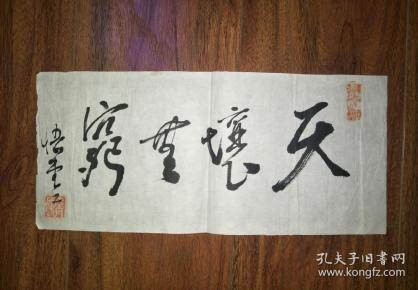 天壤無窮
悟堂
孔夫子旧书网
www.kongfz.com